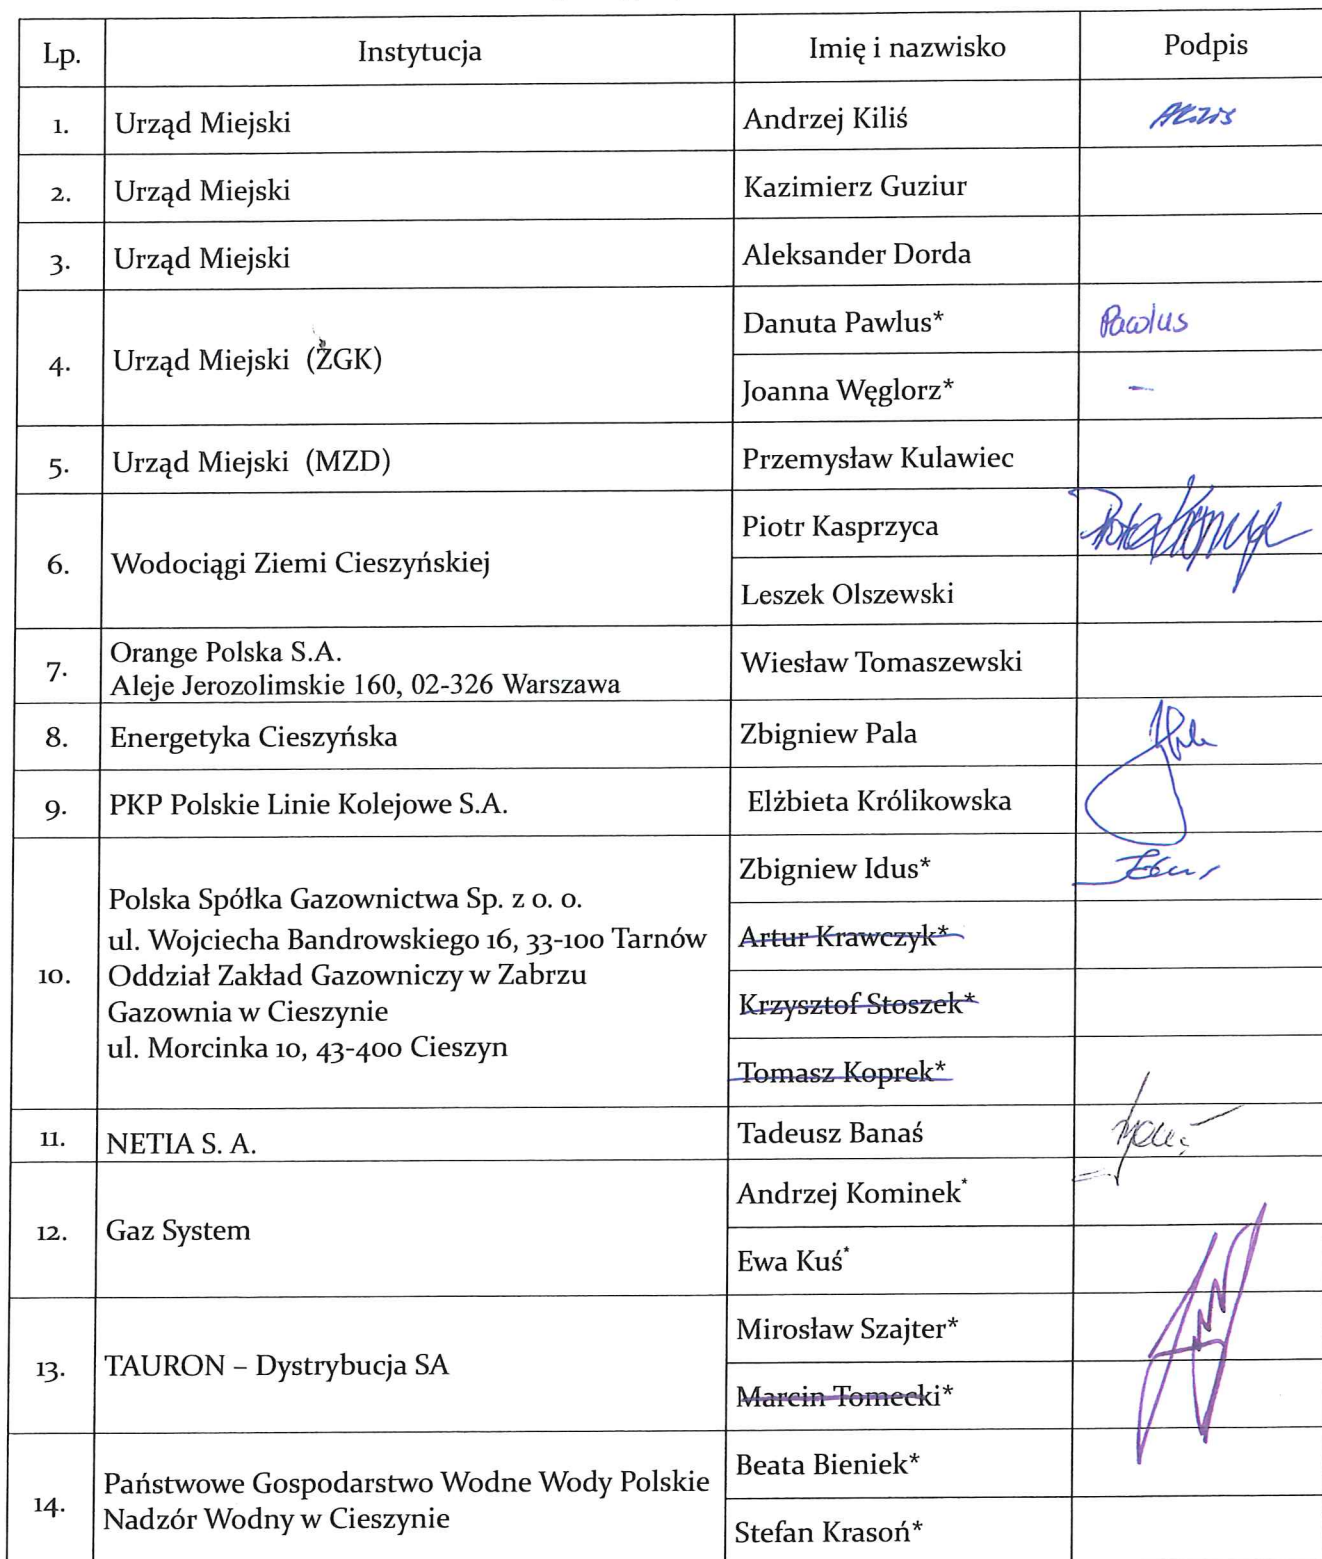 Lp. Instytucja Imię i nazwisko Podpis
1. Urząd Miejski Andrzej Kiliś
2. Urząd Miejski Kazimierz Guziur
3. Urząd Miejski Aleksander Dorda
4. Urząd Miejski (ZGK)
Danuta Pawlus* Pawlus
Joanna Węglorz* -
5. Urząd Miejski (MZD) Przemysław Kulawiec
6. Wodociągi Ziemi Cieszyńskiej
Piotr Kasprzyca
Leszek Olszewski
7. Orange Polska S.A.
Aleje Jerozolimskie 160, 02-326 Warszawa
Wiesław Tomaszewski
8. Energetyka Cieszyńska Zbigniew Pala
9. PKP Polskie Linie Kolejowe S.A. Elżbieta Królikowska
10. Polska Spółka Gazownictwa Sp. z o. o.
ul. Wojciecha Bandrowskiego 16, 33-100 Tarnów
Oddział Zakład Gazowniczy w Zabrzu
Gazownia w Cieszynie
ul. Morcinka 10, 43-400 Cieszyn
Zbigniew Idus*
Artur Krawczyk*
Krzysztof Stoszek*
Tomasz Koprek*
11. NETIA S. A. Tadeusz Banaś
12. Gaz System
Andrzej Kominek*
Ewa Kuś*
13. TAURON – Dystrybucja SA
Mirosław Szajter*
Marcin Tomecki*
14. Państwowe Gospodarstwo Wodne Wody Polskie
Nadzór Wodny w Cieszynie
Beata Bieniek*
Stefan Krasoń*